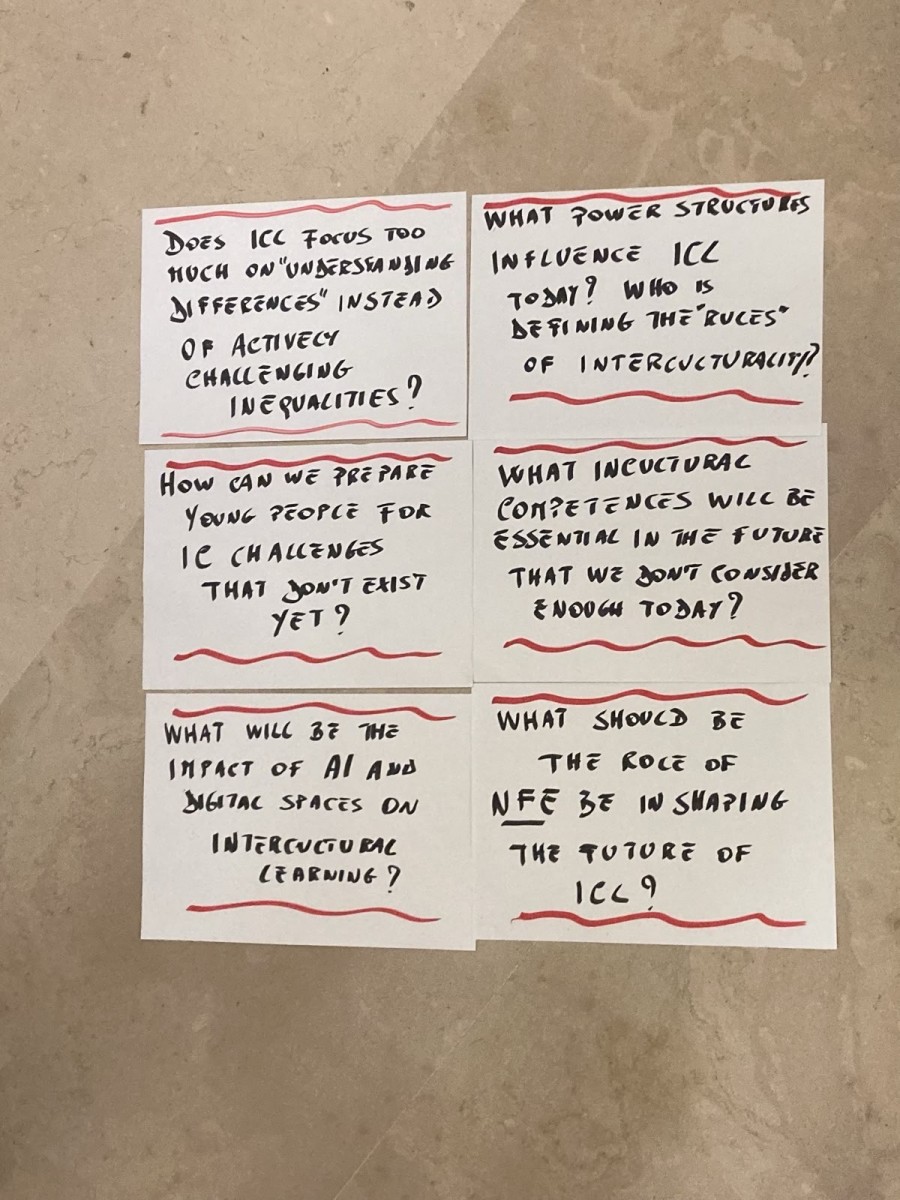 DOES ICL FOCUS TOO
MUCH ON "UNDERSTANDING
DIFFERENCES" INSTEAD
OF ACTIVELY
CHALLENGING
INEQUALITIES?
WHAT POWER STRUCTURES
INFLUENCE ICL
TODAY? WHO IS
DEFINING THE "RULES"
OF INTERCULTURALITY?
HOW CAN WE PREPARE
YOUNG PEOPLE FOR
IC CHALLENGES
THAT DON'T EXIST
YET?
WHAT INCULTURAL
COMPETENCES WILL BE
ESSENTIAL IN THE FUTURE
THAT WE DON'T CONSIDER
ENOUGH TODAY?
WHAT WILL BE THE
IMPACT OF AI AND
DIGITAL SPACES ON
INTERCULTURAL
LEARNING?
WHAT SHOULD BE
THE ROLE OF
NFE BE IN SHAPING
THE FUTURE OF
ICL?